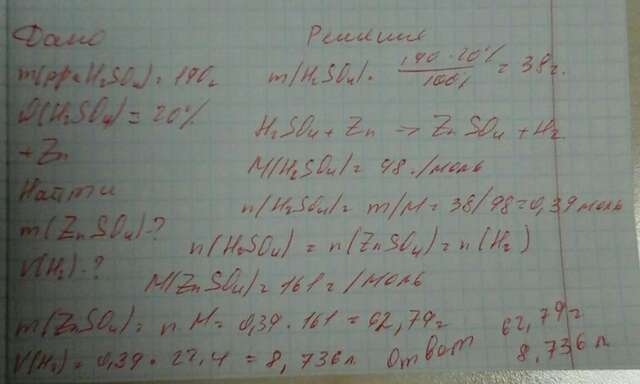 Дано
m(рра H₂SO₄) = 190 г
ω(H₂SO₄) = 20%
+ Zn
Найти
m(ZnSO₄)-?
V(H₂)-?
Решение
m(H₂SO₄) = 190 · 20% / 100% = 38 г.
H₂SO₄ + Zn → ZnSO₄ + H₂
M(H₂SO₄) = 98 г/моль
n(H₂SO₄) = m/M = 38/98 = 0,39 моль
n(H₂SO₄) = n(ZnSO₄) = n(H₂)
M(ZnSO₄) = 161 г/моль
m(ZnSO₄) = n·M = 0,39 · 161 = 62,79 г
V(H₂) = 0,39 · 22,4 = 8,736 л. Ответ 62,79 г
8,736 л.